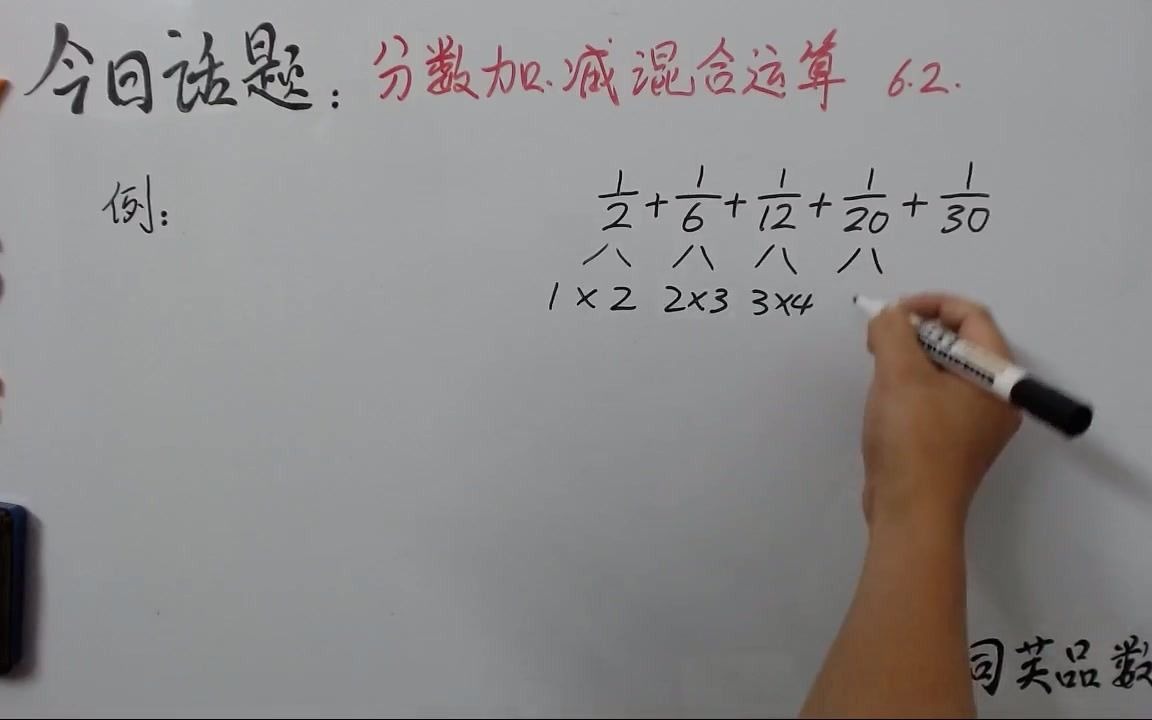 今日话题：分数加.减混合运算 6.2.
例： 1/2 + 1/6 + 1/12 + 1/20 + 1/30
1×2 2×3 3×4
芙品数